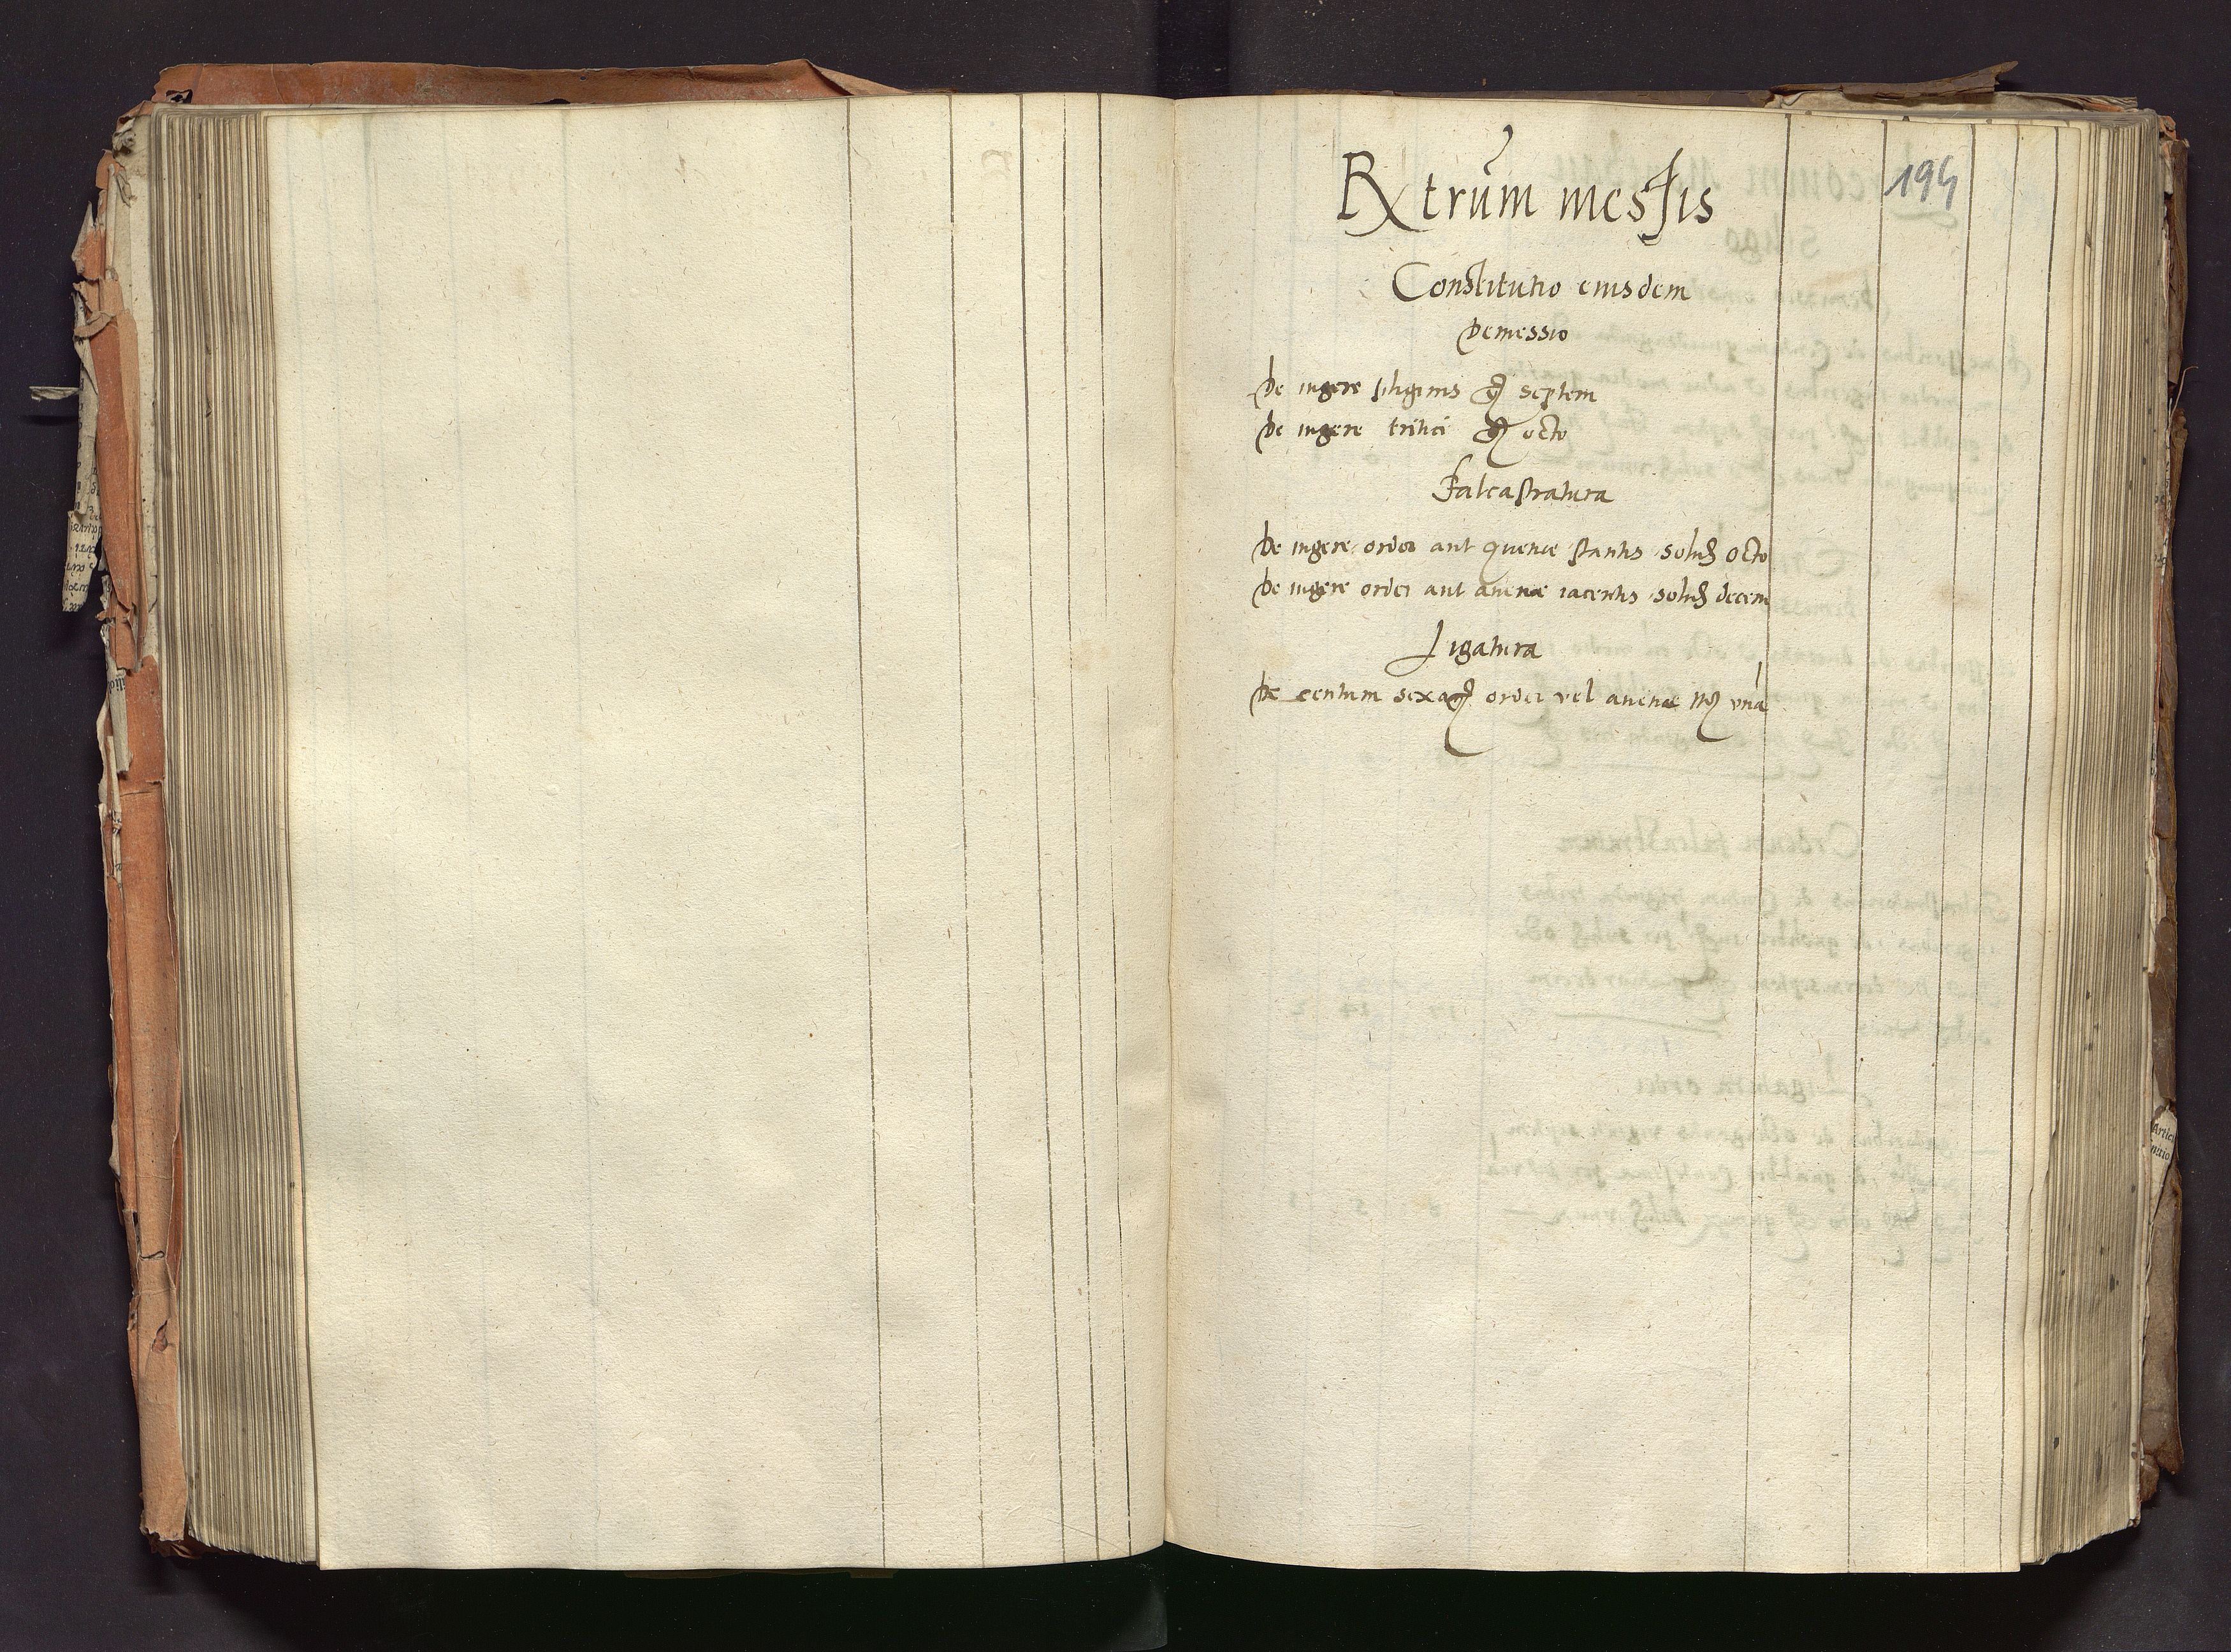 Rxtrum messis
194
Constitutio eiusdem
Demessio
De iugere siliginis gr septem
De iugere tritici gr octo
Falcastratura
De iugere ordei aut auenae stantis solid octo
De iugere ordei aut auenae iacentis solid decem
Ligatura
De centum sexag ordei vel auenae mr vna